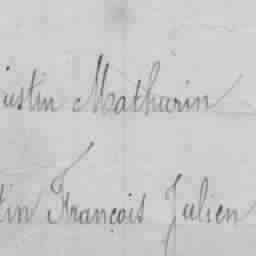 ustin Mathurin
tin François Julien